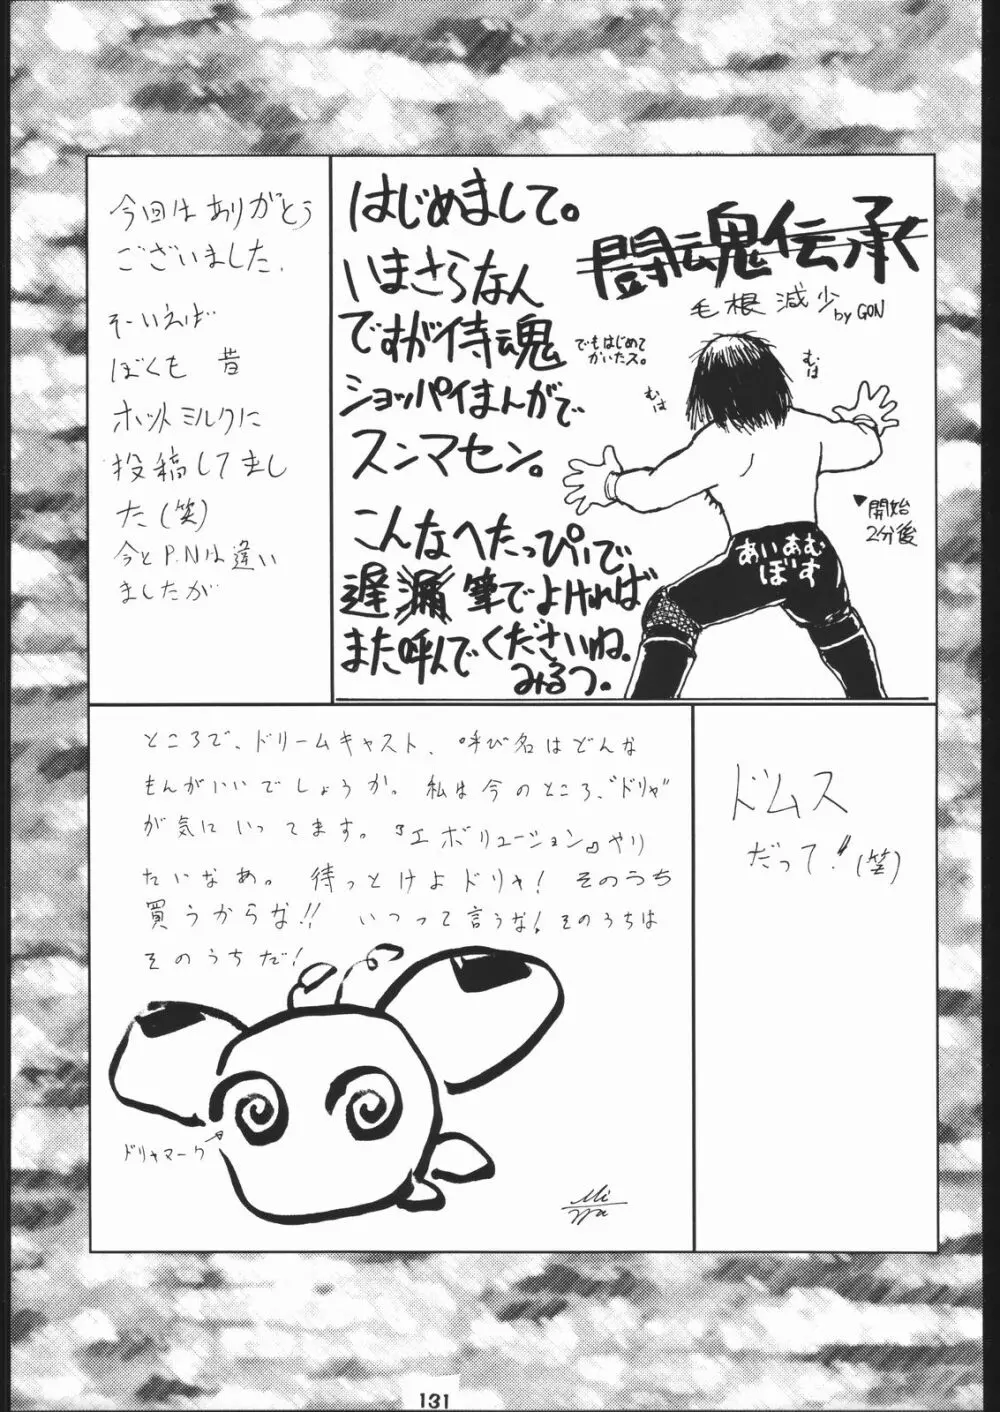 はじめまして。
いまさらなん
ですが侍魂
ショッパイまんがで
スンマセン。
こんなへたっぴいで
遅漏筆でよければ
また呼んでくださいね。
みるつ。
闘魂伝承
毛根減少 by GON
でもはじめて
かいたス。
むは
むは
▼開始
2分後
あいあむ
ぼす
今回はありがとう
ございました.
そーいえば
ぼくも 昔
ホットミルクに
投稿してまし
た(笑)
今とP.Nは違い
ましたが
ドムス
だって!!(笑)
ところで、ドリームキャスト、呼び名はどんな
もんがいいでしょうか。私は今のところ、“ドリャ”
が気にいってます。『エボリューション』やり
たいなあ。 待っとけよドリャ! そのうち
買うからな!! いつって言うな! そのうちは
そのうちだ!
ドリャマーク
Mi
ya
131